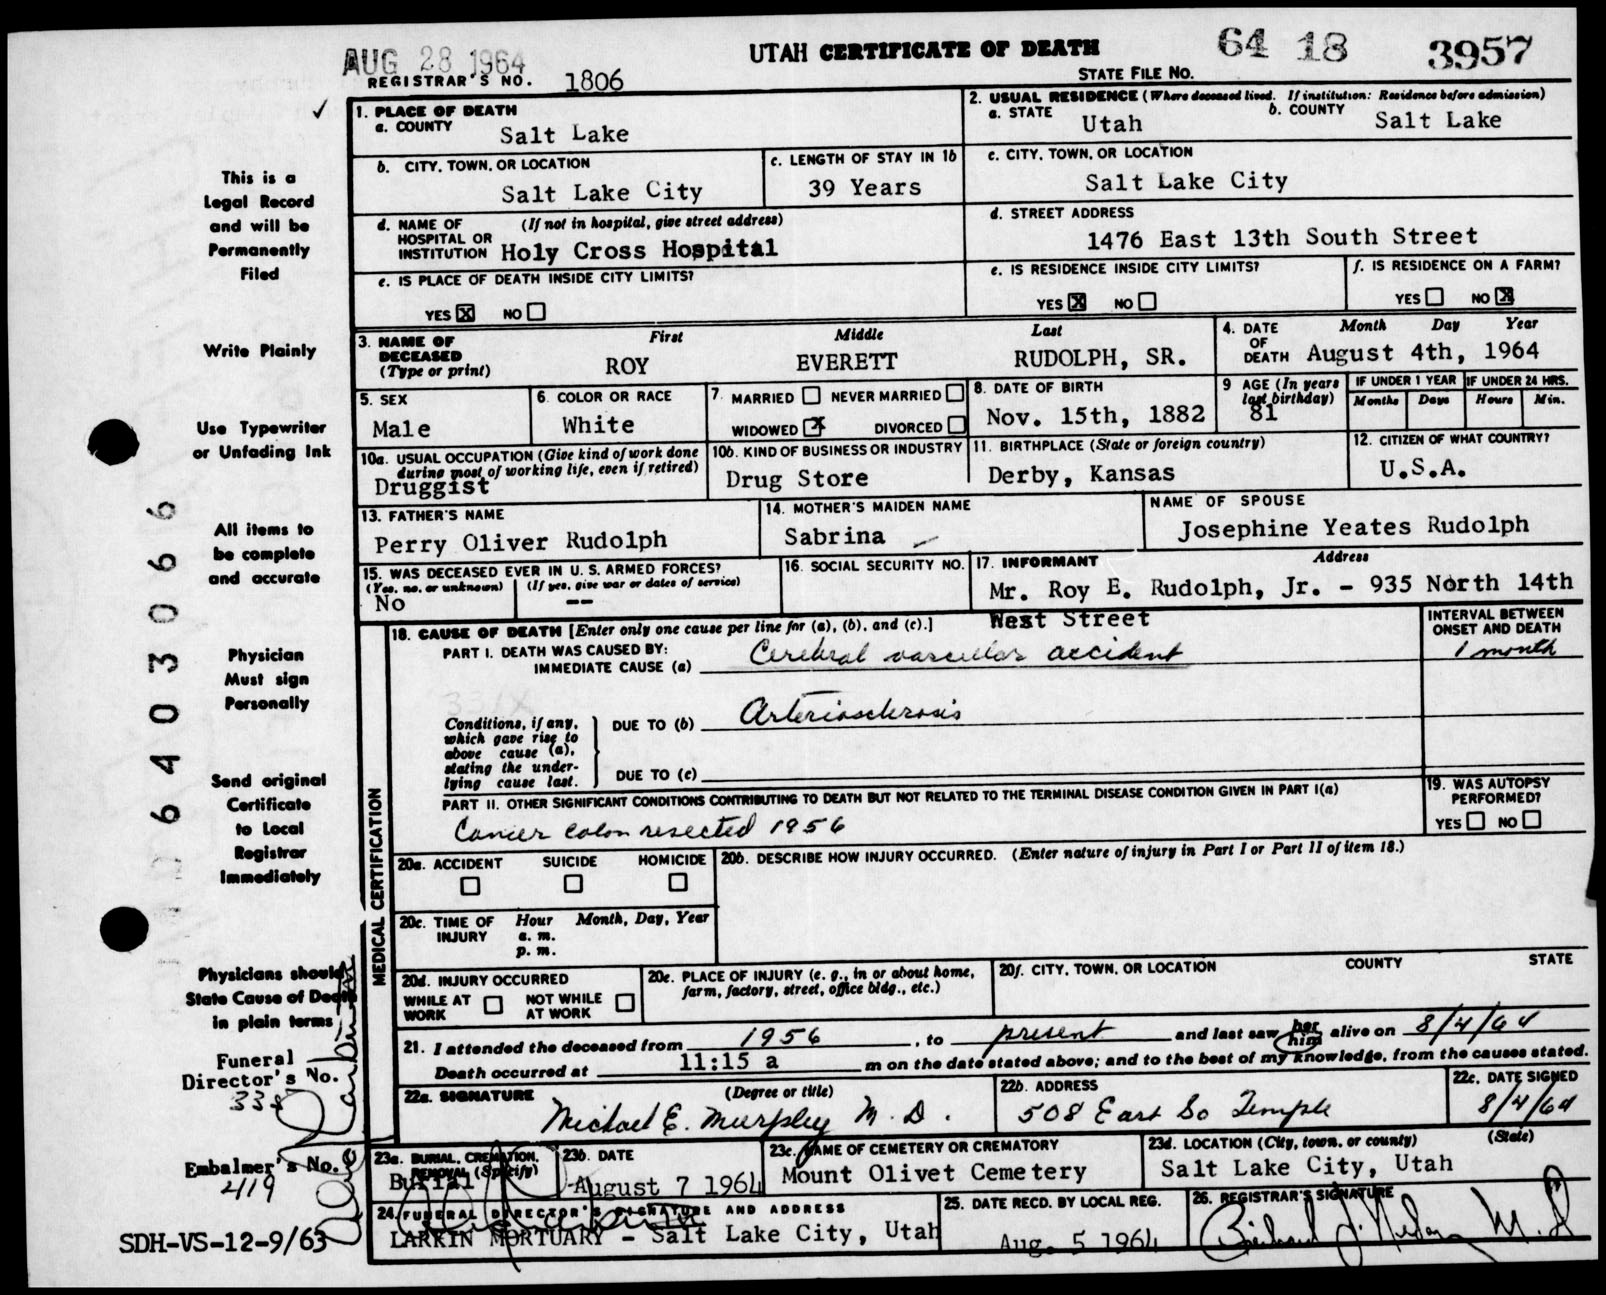 AUG 28 1964
UTAH CERTIFICATE OF DEATH 64 18 3957
REGISTRAR'S NO. 1806 STATE FILE NO.
1. PLACE OF DEATH
a. COUNTY Salt Lake
2. USUAL RESIDENCE (Where deceased lived. If institution: Residence before admission)
a. STATE Utah b. COUNTY Salt Lake
b. CITY, TOWN, OR LOCATION Salt Lake City
c. LENGTH OF STAY IN 1b 39 Years
c. CITY, TOWN, OR LOCATION Salt Lake City
d. NAME OF HOSPITAL OR INSTITUTION (If not in hospital, give street address) Holy Cross Hospital
d. STREET ADDRESS 1476 East 13th South Street
e. IS PLACE OF DEATH INSIDE CITY LIMITS?
YES X NO
e. IS RESIDENCE INSIDE CITY LIMITS?
YES X NO
f. IS RESIDENCE ON A FARM?
YES NO X
3. NAME OF DECEASED (Type or print) First Middle Last
ROY EVERETT RUDOLPH, SR.
4. DATE OF DEATH Month Day Year
August 4th, 1964
5. SEX Male
6. COLOR OR RACE White
7. MARRIED NEVER MARRIED
WIDOWED X DIVORCED
8. DATE OF BIRTH Nov. 15th, 1882
9 AGE (In years last birthday) 81
IF UNDER 1 YEAR Months Days
IF UNDER 24 HRS. Hours Min.
10a. USUAL OCCUPATION (Give kind of work done during most of working life, even if retired)
Druggist
10b. KIND OF BUSINESS OR INDUSTRY Drug Store
11. BIRTHPLACE (State or foreign country) Derby, Kansas
12. CITIZEN OF WHAT COUNTRY? U.S.A.
13. FATHER'S NAME Perry Oliver Rudolph
14. MOTHER'S MAIDEN NAME Sabrina
NAME OF SPOUSE Josephine Yeates Rudolph
15. WAS DECEASED EVER IN U. S. ARMED FORCES?
(Yes, no, or unknown) (If yes, give war or dates of service)
No --
16. SOCIAL SECURITY NO.
17. INFORMANT Address
Mr. Roy E. Rudolph, Jr. - 935 North 14th
West Street
18. CAUSE OF DEATH [Enter only one cause per line for (a), (b), and (c).]
INTERVAL BETWEEN ONSET AND DEATH
PART I. DEATH WAS CAUSED BY:
IMMEDIATE CAUSE (a) Cerebral vascular accident 1 month
331X
Conditions, if any, which gave rise to above cause (a), stating the underlying cause last.
DUE TO (b) Arteriosclerosis
DUE TO (c)
PART II. OTHER SIGNIFICANT CONDITIONS CONTRIBUTING TO DEATH BUT NOT RELATED TO THE TERMINAL DISEASE CONDITION GIVEN IN PART I(a)
Cancer colon resected 1956
19. WAS AUTOPSY PERFORMED?
YES NO
20a. ACCIDENT SUICIDE HOMICIDE
20b. DESCRIBE HOW INJURY OCCURRED. (Enter nature of injury in Part I or Part II of item 18.)
20c. TIME OF INJURY Hour Month, Day, Year
a. m.
p. m.
20d. INJURY OCCURRED
WHILE AT WORK NOT WHILE AT WORK
20e. PLACE OF INJURY (e. g., in or about home, farm, factory, street, office bldg., etc.)
20f. CITY, TOWN, OR LOCATION COUNTY STATE
21. I attended the deceased from 1956, to present and last saw her him alive on 8/4/64
Death occurred at 11:15 a m on the date stated above; and to the best of my knowledge, from the causes stated.
22a. SIGNATURE (Degree or title)
Michael E. Murphy M. D.
22b. ADDRESS 508 East So Temple
22c. DATE SIGNED 8/4/64
23a. BURIAL, CREMATION, REMOVAL (Specify) Burial
23b. DATE August 7 1964
23c. NAME OF CEMETERY OR CREMATORY Mount Olivet Cemetery
23d. LOCATION (City, town, or county) (State)
Salt Lake City, Utah
24. FUNERAL DIRECTOR'S SIGNATURE AND ADDRESS
LARKIN MORTUARY - Salt Lake City, Utah
25. DATE RECD. BY LOCAL REG. Aug. 5 1964
26. REGISTRAR'S SIGNATURE
M D
MEDICAL CERTIFICATION
This is a
Legal Record
and will be
Permanently
Filed
Write Plainly
Use Typewriter
or Unfading Ink
All items to
be complete
and accurate
Physician
Must sign
Personally
Send original
Certificate
to Local
Registrar
Immediately
Physicians should
State Cause of Death
in plain terms
Funeral
Director's No.
Embalmer's No.
419
SDH-VS-12-9/63
6403066